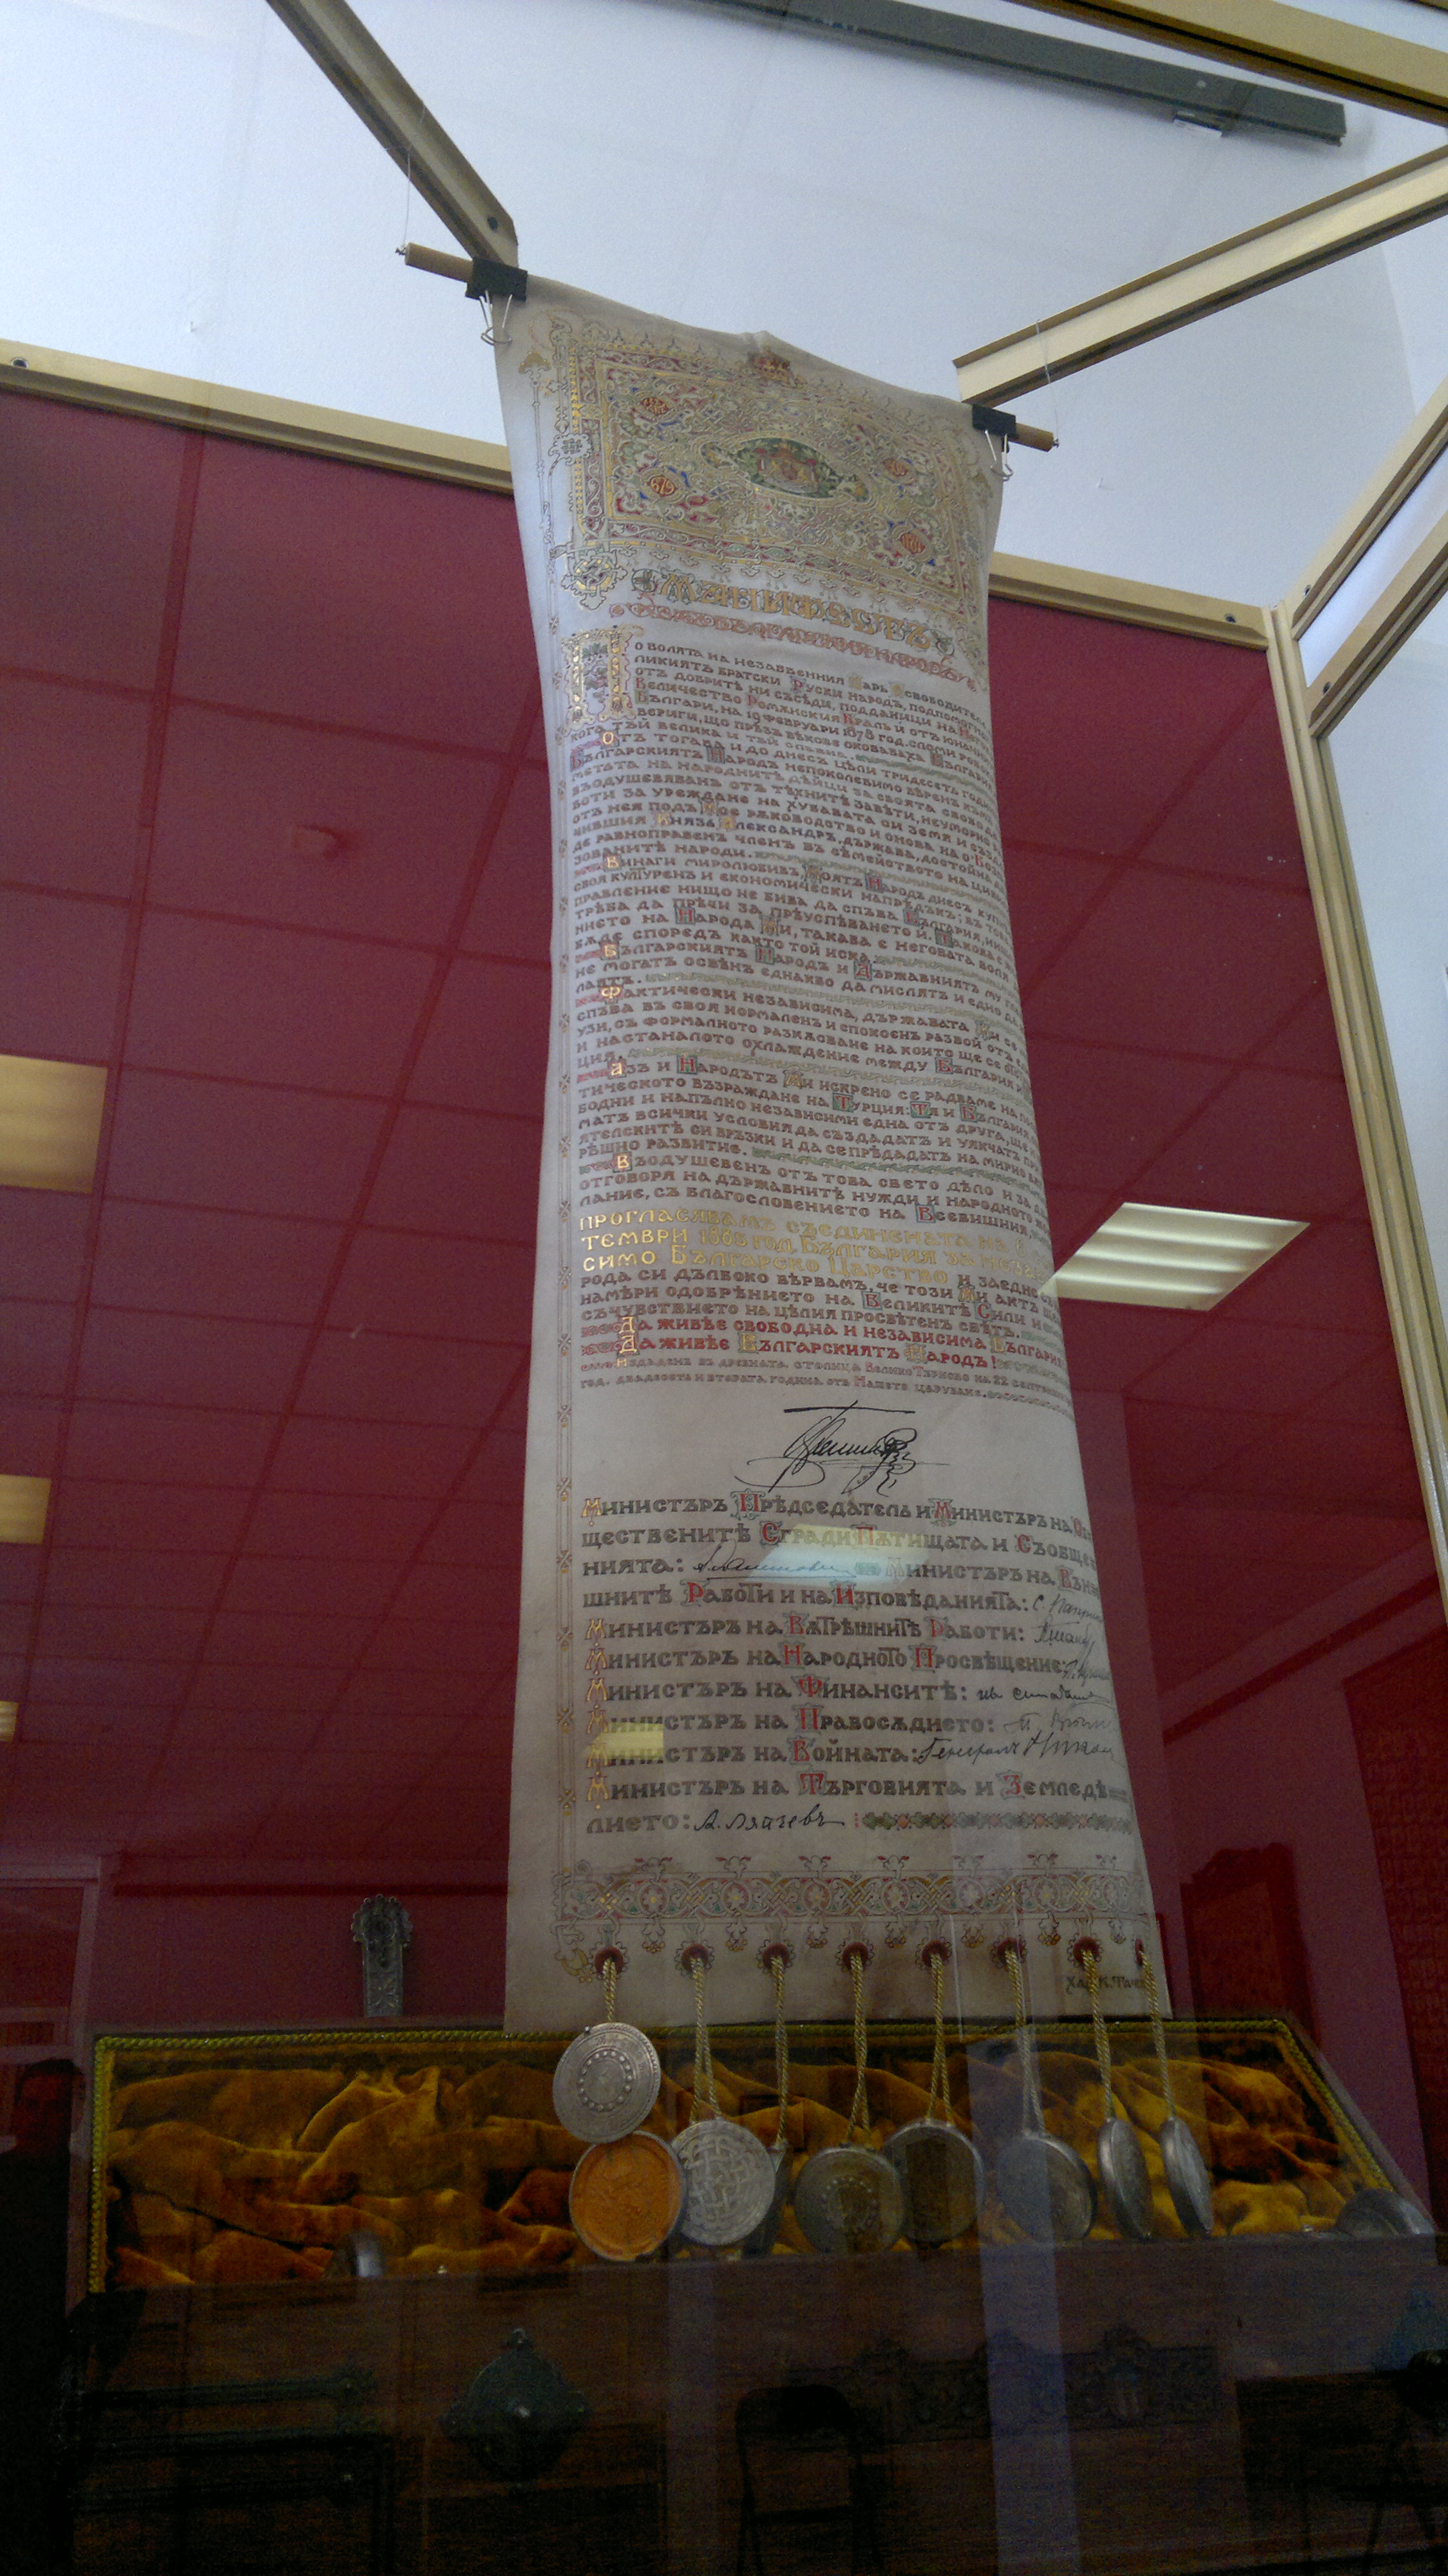 МАНИФЕСТЪ
КЪМЪ БЪЛГАРСКИЯ НАРОДЪ
ПО ВОЛЯТА НА НЕЗАБВЕННИЯ ЦАРЬ ОСВОБОДИТЕЛЬ
ЛИКИЯТЪ БРАТСКИ РУСКИ НАРОДЪ, ПОДПОМОГНА
ОТЪ ДОБРИТѢ НИ СЪСѢДИ, ПОДДАНИЦИ НА
ВЕЛИЧЕСТВО РОМѪНСКИЯ КРАЛЬ И ОТЪ ЮНАЦИ
БЪЛГАРИ, НА 19 ФЕВРУАРИ 1878 ГОД. СЛОМИ РОБС
ВЕРИГИ, ЩО ПРѢЗЪ ВѢКОВЕ ОКОВАВАХА БЪЛГАРИЯ
КОГА ТЪЙ ВЕЛИКА И ТЪЙ СЛАВНА.
ОТЪ ТОГАВА И ДО ДНЕСЪ, ЦѢЛИ ТРИДЕСЕТЬ ГОДИ
БЪЛГАРСКИЯТЪ НАРОДЪ НЕПОКОЛЕБИМО ВѢРЕНЪ КЪМЪ
МЕТЬТА НА НАРОДНИТѢ ДѢЙЦИ ЗА СВОЯТА СВОБОДА
ВЪОДУШЕВЯВАНЪ ОТЪ ТѢХНИТѢ ЗАВѢТИ, НЕУМОРНО
БОТИ ЗА УРЕЖДАНЕ НА ХУБАВАТА СИ ЗЕМЯ И СЪЗДА
ОТЪ НЕЯ ПОДЪ МОЕ РѪКОВОДСТВО И ОНОВА НА О БОЗѢ
ЧИВШИЯ КНЯЗЬ АЛЕКСАНДРЪ, ДЪРЖАВА, ДОСТОЙНА ДА
ДЕ РАВНОПРАВЕНЪ ЧЛЕНЪ ВЪ СЕМЕЙСТВОТО НА ЦИВИ
ЗОВАНИТѢ НАРОДИ.
ВИНАГИ МИРОЛЮБИВЪ, МОЯТЪ НАРОДЪ ДНЕСЪ КОПНѢ
СВОЯ КУЛТУРЕНЪ И ЕКОНОМИЧЕСКИ НАПРѢДЪКЪ; ВЪ ТОВА
ПРАВЛЕНИЕ НИЩО НЕ БИВА ДА СПЪВА БЪЛГАРИЯ, НИЩО
ТРѢБА ДА ПРѢЧИ ЗА ПРѢУСПѢВАНЕТО Й. ТАКОВА Е
НИЕТО НА НАРОДА МИ, ТАКАВА Е НЕГОВАТА ВОЛЯ
БѪДЕ СПОРЕДЪ КАКТО ТОЙ ИСКА.
БЪЛГАРСКИЯТЪ НАРОДЪ И ДЪРЖАВНИЯТЪ МУ ГЛ
НЕ МОГАТЪ ОСВѢНЪ ЕДНАКВО ДА МИСЛЯТЪ И ЕДНО ДА
ЛАЯТЪ.
ФАКТИЧЕСКИ НЕЗАВИСИМА, ДЪРЖАВАТА МИ СЕ
СПЪВА ВЪ СВОЯ НОРМАЛЕНЪ И СПОКОЕНЪ РАЗВОЙ ОТЪ
УЗИ, СЪ ФОРМАЛНОТО РАЗКѪСВАНЕ НА КОИТО ЩЕ СЕ
И НАСТАНАЛОТО ОХЛАЖДЕНИЕ МЕЖДУ БЪЛГАРИЯ И
ЦИЯ.
АЗЪ И НАРОДЪТЪ МИ ИСКРЕНО СЕ РАДВАМЕ НА
ТИЧЕСКОТО ВЪЗРАЖДАНЕ НА ТУРЦИЯ: ТЯ И БЪЛГАРИЯ
БОДНИ И НАПЪЛНО НЕЗАВИСИМИ ЕДНА ОТЪ ДРУГА, ЩЕ
МАТЪ ВСИЧКИ УСЛОВИЯ ДА СЪЗДАДАТЪ И УЯКЧАТЪ ПРИ
ЯТЕЛСКИТѢ СИ ВРЪЗКИ И ДА СЕ ПРѢДАДАТЪ НА МИРНО
РѢШНО РАЗВИТИЕ.
ВЪОДУШЕВЕНЪ ОТЪ ТОВА СВЕТО ДѢЛО И ЗА ДА
ОТГОВОРЯ НА ДЪРЖАВНИТѢ НУЖДИ И НАРОДНОТО
ЛАНИЕ, СЪ БЛАГОСЛОВЕНИЕТО НА ВСЕВИШНИЯ,
ПРОГЛАСЯВАМЪ СЪЕДИНЕНАТА НА 6
ТЕМВРИ 1885 ГОД. БЪЛГАРИЯ ЗА НЕЗАВИ
СИМО БЪЛГАРСКО ЦАРСТВО И ЗАЕДНО
РОДА СИ ДЪЛБОКО ВѢРВАМЪ, ЧЕ ТОЗИ МИ АКТЪ
НАМѢРИ ОДОБРѢНИЕТО НА ВЕЛИКИТѢ СИЛИ И
СЪЧУВСТВИЕТО НА ЦѢЛИЯ ПРОСВѢТЕНЪ СВѢТЪ.
ДА ЖИВѢЕ СВОБОДНА И НЕЗАВИСИМА БЪЛГАРИЯ
ДА ЖИВѢЕ БЪЛГАРСКИЯТЪ НАРОДЪ!
ИЗДАДЕНЪ ВЪ ДРЕВНАТА СТОЛИЦА ВЕЛИКО ТЪРНОВО НА 22 СЕПТЕМВРИ
ГОД. ДВАДЕСЕТЬ И ВТОРАТА ГОДИНА ОТЪ НАШЕТО ЦАРУВАНЕ.
МИНИСТЪРЪ ПРѢДСЕДАТЕЛЬ И МИНИСТЪРЪ НА ОБ
ЩЕСТВЕНИТѢ СГРАДИ ПѪТИЩАТА И СЪОБЩЕ
НИЯТА: МИНИСТЪРЪ НА ВЪН
ШНИТѢ РАБОТИ И НА ИЗПОВѢДАНИЯТА:
МИНИСТЪРЪ НА ВѪТРѢШНИТѢ РАБОТИ:
МИНИСТЪРЪ НА НАРОДНОТО ПРОСВѢЩЕНИЕ:
МИНИСТЪРЪ НА ФИНАНСИТѢ:
МИНИСТЪРЪ НА ПРАВОСѪДИЕТО:
МИНИСТЪРЪ НА ВОЙНАТА: Генералъ
МИНИСТЪРЪ НА ТЪРГОВИЯТА И ЗЕМЛЕДѢ
ЛИЕТО: А. Ляпчевъ
ХАР. К. ТАЧЕВ